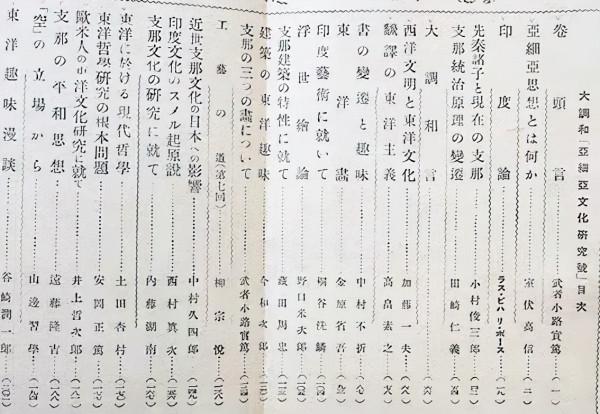 大調和「亞細亞文化研究號」目次
卷頭言……武者小路實篤…(一)
亞細亞思想とは何か……室伏高信…(二)
印度論……ラス・ビハリ・ボース…(一九)
先秦諸子と現在の支那……小村俊三郎…
支那統治原理の變遷……田崎仁義…
大調和言……
西洋文明と東洋文化……加藤一夫…
飜譯の東洋主義……高畠素之…
書の變遷と趣味……中村不折…
東洋畵……金原省吾…
印度藝術に就いて……桐谷洗鱗…
浮世繪論……野口米次郎…
支那建築の特性に就て……藏田周忠…
建築の東洋趣味……今和次郎…
支那の三つの畵について……武者小路實篤…
工藝の道(第七回)……柳宗悅…
近世支那文化の日本への影響……中村久四郎…
印度文化のスメル起原說……西村眞次…
支那文化の研究に就て……內藤湖南…
東洋に於ける現代哲學……土田杏村…
東洋哲學研究の根本問題……安岡正篤…
歐米人の東洋文化研究に就て……井上哲次郎…
支那の平和思想……遠藤隆吉…
「空」の立場から……山邊習學…
東洋趣味漫談……谷崎潤一郎…